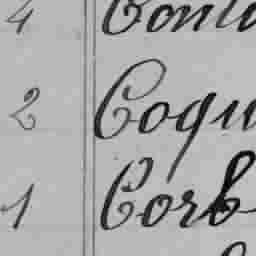 4 Cont
2 Coqu
1 Corb